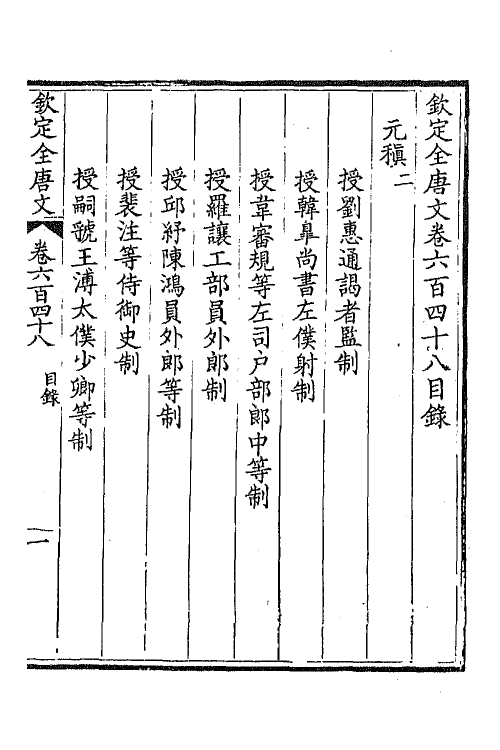 欽定全唐文卷六百四十八目錄
元稹二
授劉惠通謁者監制
授韓臯尚書左僕射制
授韋審規等左司户部郎中等制
授羅讓工部員外郎制
授邱紓陳鴻員外郎等制
授裴注等侍御史制
授嗣虢王溥太僕少卿等制
欽定全唐文 卷六百四十八 目錄 一